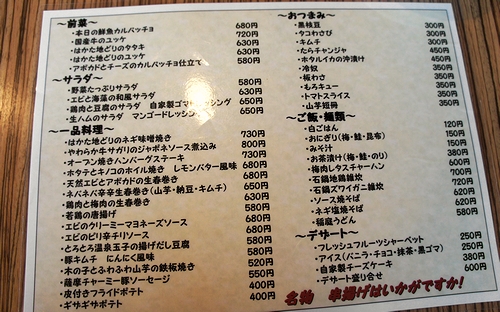 ～前菜～
・本日の鮮魚カルパッチョ 680円
・国産牛のユッケ 720円
・はかた地どりのタタキ 630円
・はかた地どりのユッケ 630円
・アボカドとチーズのカルパッチョ仕立て 580円
～サラダ～
・野菜たっぷりサラダ 580円
・エビと海藻の和風サラダ 630円
・鶏肉と豆腐のサラダ 自家製ゴマドレッシング 650円
・生ハムのサラダ マンゴードレッシング 650円
～一品料理～
・はかた地どりのネギ味噌焼き 730円
・やわらか牛サガリのジャポネソース煮込み 800円
・オーブン焼きハンバーグステーキ 730円
・ホタテとキノコのホイル焼き レモンバター風味 680円
・天然エビとアボカドの生春巻き 680円
・ネバネバ辛辛生春巻き(山芋・納豆・キムチ) 650円
・鶏肉と梅肉の生春巻き 630円
・若鶏の唐揚げ 580円
・エビのクリーミーマヨネーズソース 680円
・エビのピリ辛チリソース 680円
・とろとろ温泉玉子の揚げだし豆腐 580円
・豚キムチ にんにく風味 680円
・木の子とふわふわ山芋の鉄板焼き 520円
・薩摩チャーミー豚ソーセージ 550円
・皮付きフライドポテト 400円
・ギザギザポテト 400円
～おつまみ～
・黒枝豆 300円
・タコわさび 300円
・キムチ 300円
・たらチャンジャ 450円
・ホタルイカの沖漬け 450円
・冷奴 350円
・板わさ 350円
・もろキュー 350円
・トマトスライス 350円
・山芋短冊 350円
～ご飯・麺類～
・白ごはん 120円
・おにぎり(梅・鮭・昆布) 150円
・みそ汁 150円
・お茶漬け(梅・鮭・のり) 380円
・梅肉しタスチャーハン 600円
・石鍋地鶏雑炊 700円
・石鍋ズワイガニ雑炊 720円
・ソース焼そば 620円
・ネギ塩焼そば 620円
・稲庭うどん 580円
～デザート～
・フレッシュフルーツシャーベット 250円
・アイス(バニラ・チョコ・抹茶・黒ゴマ) 250円
・自家製チーズケーキ 380円
・デザート盛り合せ 600円
名物 串揚げはいかがですか!